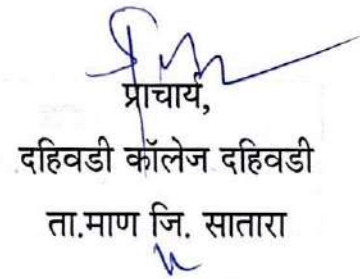 प्राचार्य,
दहिवडी कॉलेज दहिवडी
ता.माण जि. सातारा